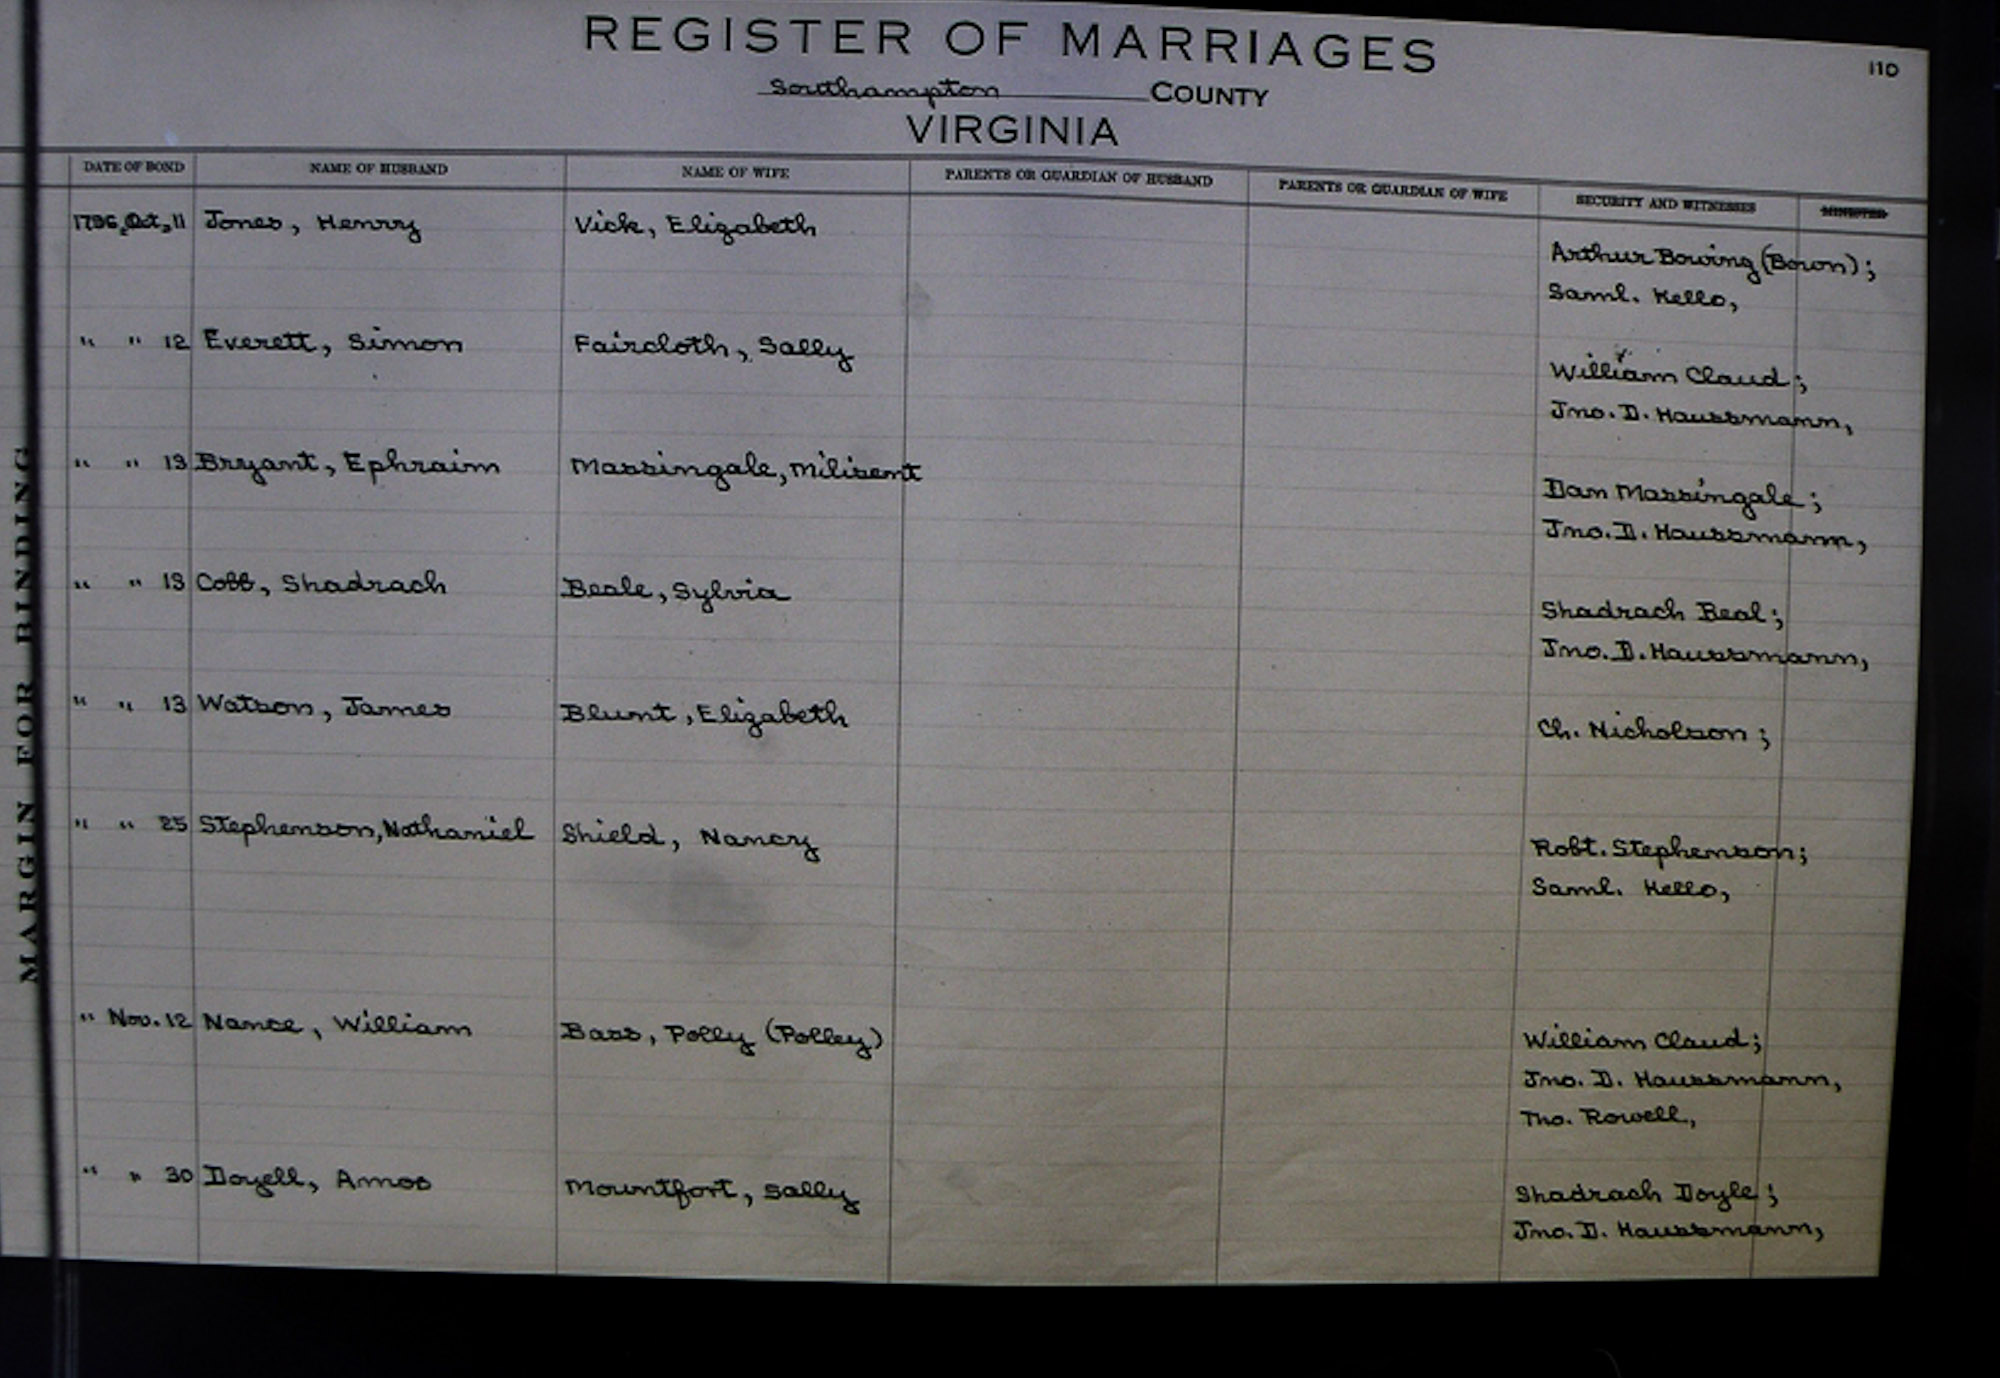 REGISTER OF MARRIAGES
110
Southampton COUNTY
VIRGINIA
MARGIN FOR BINDING
DATE OF BOND NAME OF HUSBAND NAME OF WIFE PARENTS OR GUARDIAN OF HUSBAND PARENTS OR GUARDIAN OF WIFE SECURITY AND WITNESSES MINISTER
1796, Oct, 11 Jones, Henry Vick, Elizabeth
Arthur Bowing (Bown);
Saml. Kello,
" " 12 Everett, Simon Faircloth, Sally
William Claud;
Jno. D. Haussmann,
" " 13 Bryant, Ephraim Massingale, Milisent
Dan Massingale;
Jno. D. Haussmann,
" " 13 Cobb, Shadrach Beale, Sylvia
Shadrach Beal;
Jno. D. Haussmann,
" " 13 Watson, James Blunt, Elizabeth
Ch. Nicholson;
" " 25 Stephenson, Nathaniel Shield, Nancy
Robt. Stephenson;
Saml. Kello,
" Nov. 12 Nance, William Bass, Polly (Polley)
William Claud;
Jno. D. Haussmann,
Tho. Rowell,
" " 30 Doyell, Amos Mountfort, Sally
Shadrach Doyle;
Jno. D. Haussmann,